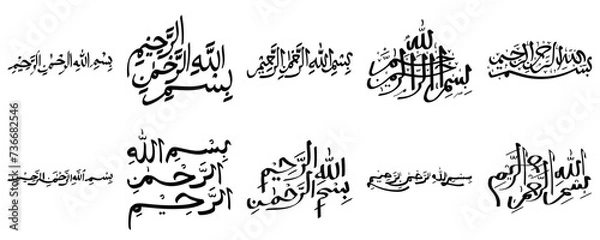 بسم الله الرحمن الرحيم
بسم الله الرحمن الرحيم
بسم الله الرحمن الرحيم
بسم الله الرحمن الرحيم
بسم الله الرحمن الرحيم
بسم الله الرحمن الرحيم
بسم الله
الرحمن
الرحيم
بسم الله الرحمن الرحيم
بسم الله الرحمن الرحيم
بسم الله الرحمن الرحيم
Adobe Stock | #736682546